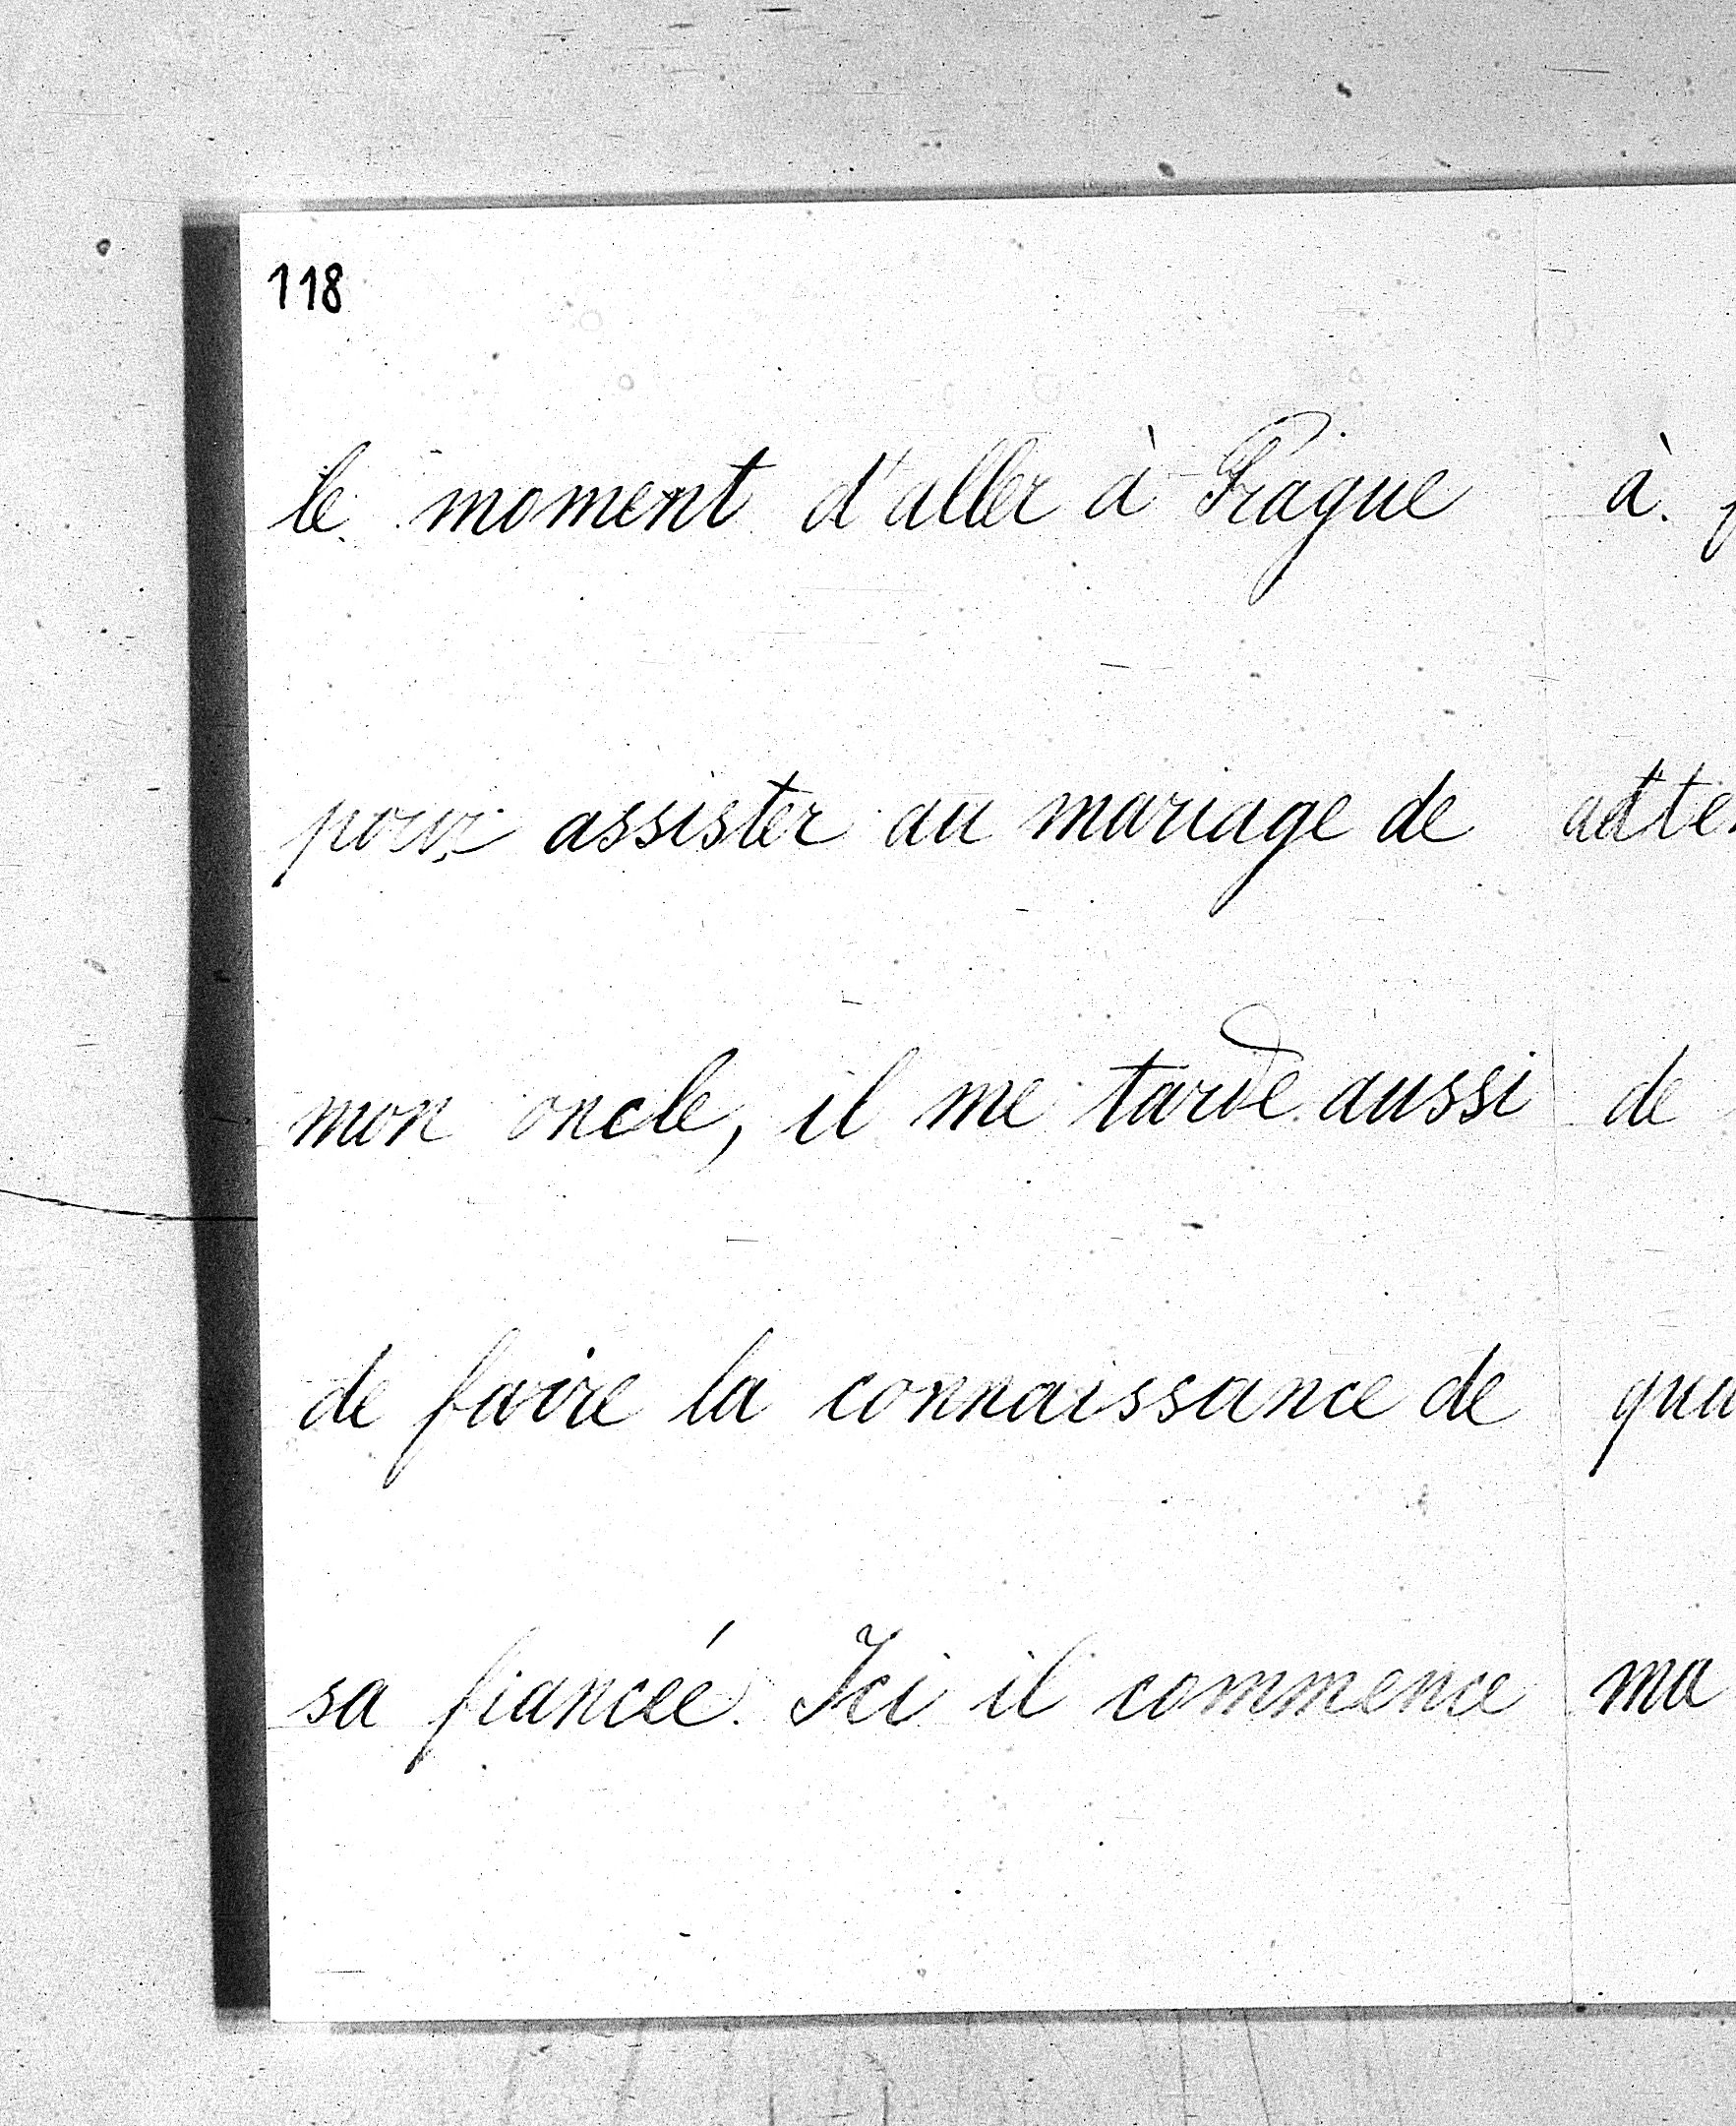 118
le moment d'aller à Prague
pour assister au mariage de
mon oncle, il me tarde aussi
de faire la connaissance de
sa fiancée. Ici il commence
à
de
ma